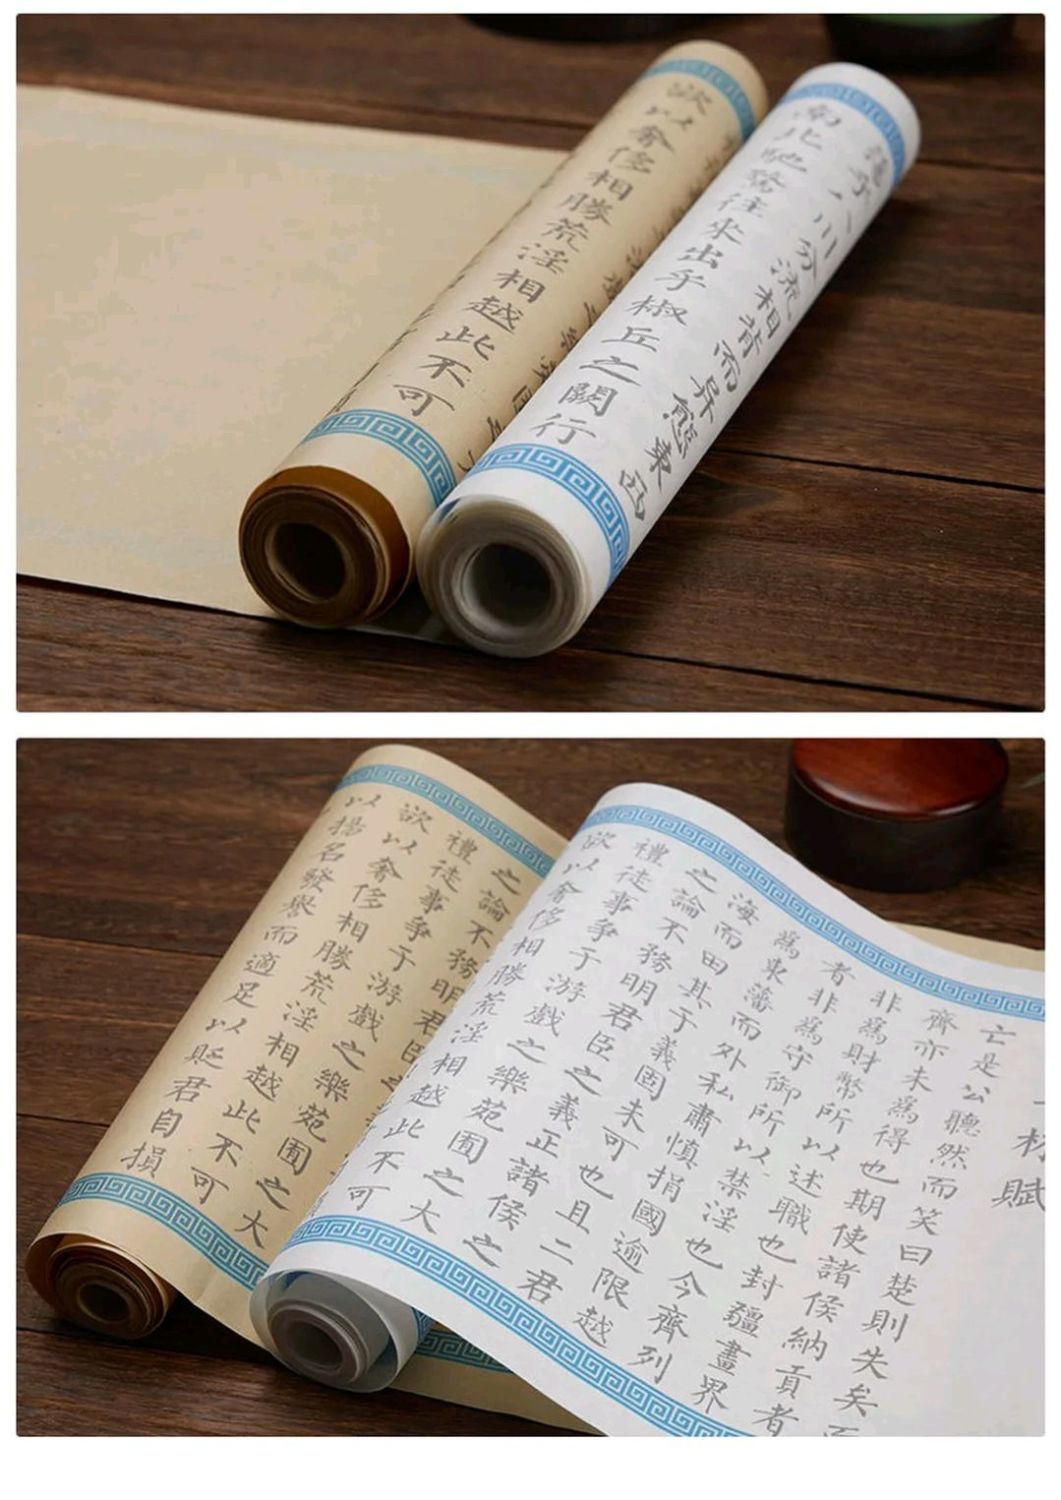 乎八川分流相背而异態東西
南北馳騖往來出乎椒丘之闕行
欲以奢侈相勝荒淫相越此不可
林賦
亡是公聽然而笑曰楚則失矣而
齊亦未爲得也期使諸侯納貢者
非爲財幣所以述職也封疆畫界
者非爲守御所以禁淫也今齊列
爲東藩而外私肅慎捐國逾限越
海而田其于義固未可也且二君
之論不務明君臣之義正諸侯之
禮徒事争于游戲之樂苑囿之大
欲以奢侈相勝荒淫相越此不可
之論不務明君臣之
禮徒事争于游戲之樂苑囿之大
欲以奢侈相勝荒淫相越此不可
以揚名發譽而適足以貶君自損